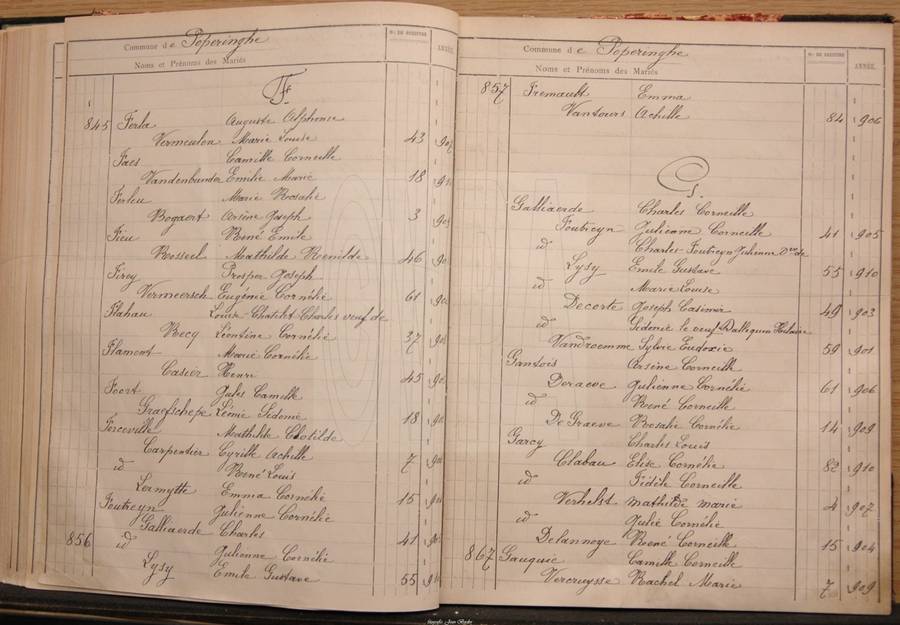 Commune de Poperinghe
No. DE REGISTRE
ANNÉE.
Noms et Prénoms des Mariés
F
845 Ferla Auguste Alphonse
Vermeulen Marie Louise 43 907
Faes Camille Corneille
Vandenbunder Emilie Marie 18
Ferleu Marie Rosalie
Bogaert Arsène Joseph 3
Fieu René Emile
Rosseul Mathilde Renilde 46
Firey Prosper Joseph
Vermeersch Eugénie Cornélie 61
Flahau Louis-Chatelet-Charles veuf de
Becq Léontine Cornélie 37
Flamont Marie Cornélie
Casier Henri 45
Foort Jules Camille
Graefschepe Lémie Sidonie 18
Forceville Mathilde Clotilde
Carpentier Cyrille Achille 7
id René Louis
Lermytte Emma Cornélie 15
Foutreyn Julienne Cornélie
Galliaerde Charles 41
856 id Julienne Cornélie
Lysy Emile Gustave 55
Commune de Poperinghe
No. DE REGISTRE
ANNÉE.
Noms et Prénoms des Mariés
857 Fremault Emma
Vantours Achille 84 906
G.
Galliaerde Charles Corneille
Foutreyn Julienne Corneille 41 905
id Charles-Foutreyn Julienne Dve de
Lysy Emile Gustave 55 910
id Marie Louise
Decorte Joseph Casimir 49 903
id Sidonie le veuf Dallequin Hilaire
Vandroemme Sylvie Eudoxie 59 901
Gantois Arsène Corneille
Deraeve Julienne Cornélie 61 906
id René Corneille
De Graeve Rosalie Cornélie 14 909
Garcy Charles Louis
Clabau Elise Cornélie 82 910
id Fidèle Corneille
Verhelst Mathilde Marie 4 907
id Julie Cornélie
Delannoye René Corneille 15 904
867 Gauquie Camille Corneille
Vercruysse Rachel Marie 7 909